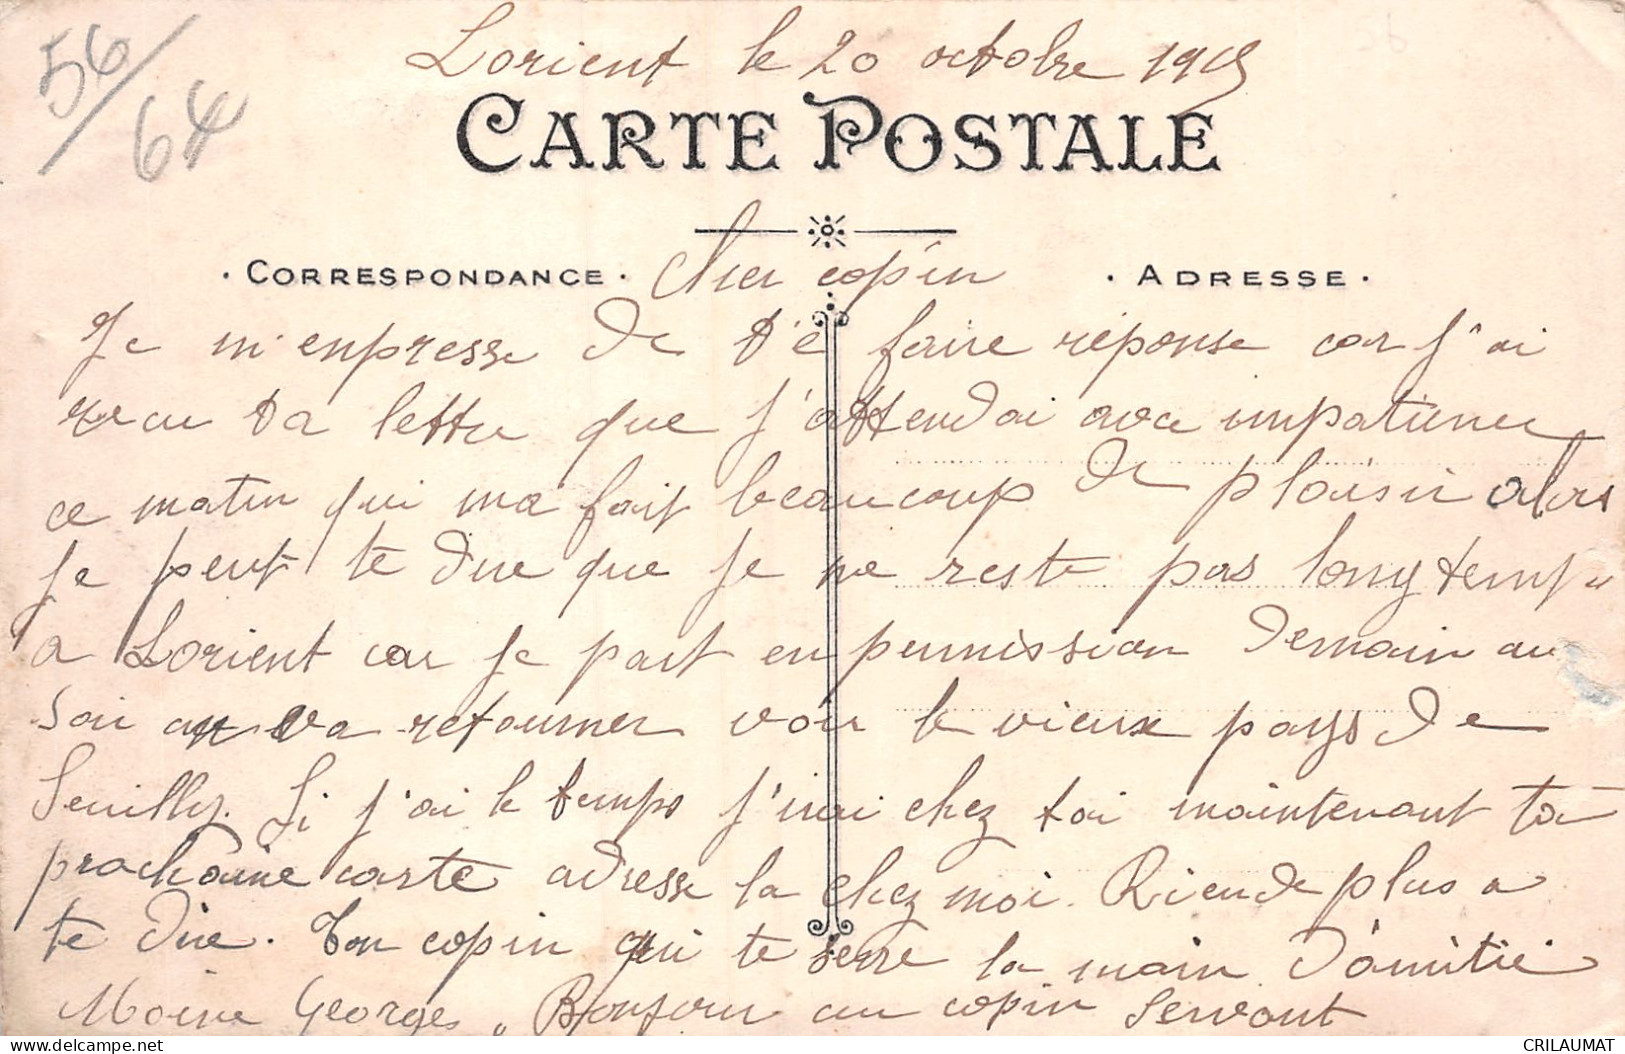 56/
64
Lorient le 20 octobre 1915
CARTE POSTALE
· CORRESPONDANCE · Cher copin · ADRESSE ·
Je m'enpresse de t'é faire réponse car j'ai
recu ta lettre que j'attendai avec impatience
ce matin qui ma fait beaucoup de plaisir alors
je peut te dire que je ne reste pas longtemps
a Lorient car je part en permission demain au
soir on va retourner voir le vieux pays de
Seuilly. Si j'ai le temps j'irai chez toi maintenant ta
prochaine carte adresse la chez moi. Rien de plus a
te dire. Ton copin qui te serre la main d'amitié
Moine Georges, Bonjour au copin Servant
CRILAUMAT